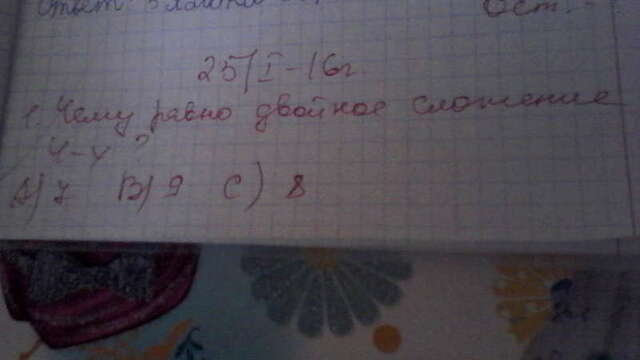 Ответ:
Ост.
25/I-16г.
1. Чему равно двойное сложение
4-х?
A) 7 B) 9 C) 8